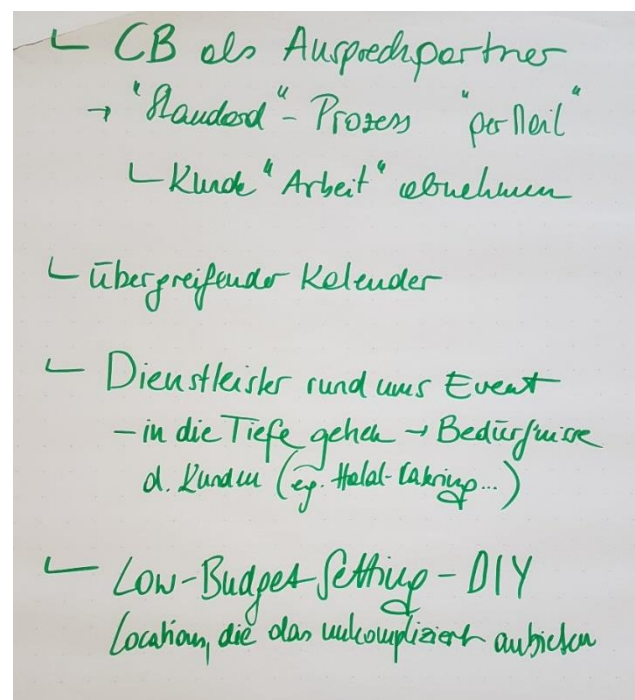 └ CB als Ansprechpartner
→ "Standard"- Prozess "per Mail"
└ Kunde "Arbeit" abnehmen
└ übergreifender Kalender
└ Dienstleister rund ums Event
- in die Tiefe gehen → Bedürfnisse
d. Kunden (eg. Halal-Catering...)
└ Low-Budget-Setting - DIY
Locations, die das unkompliziert anbieten